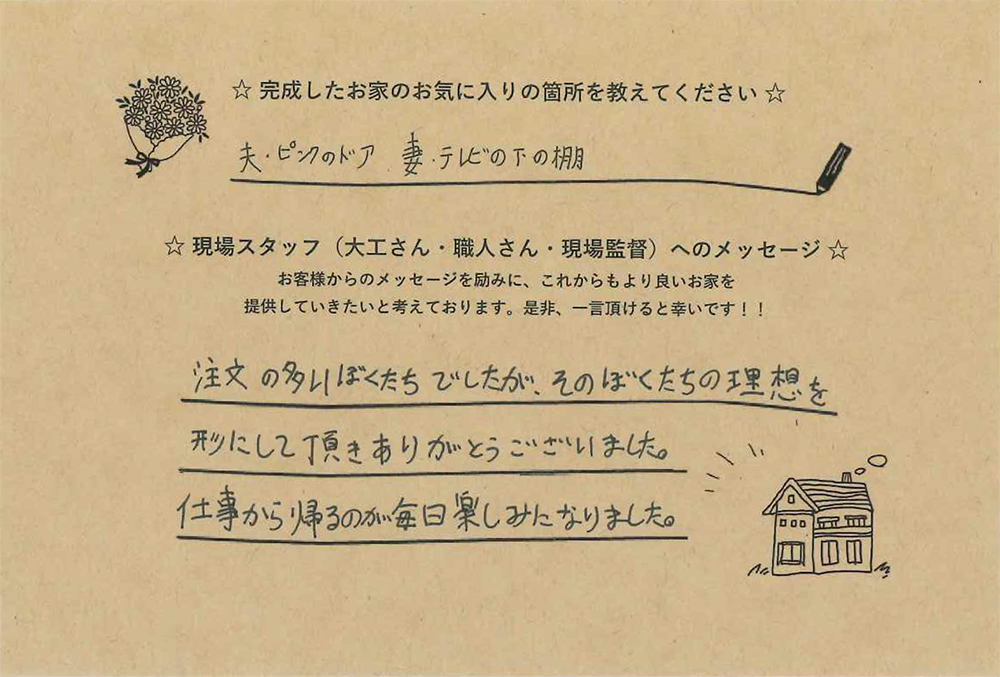 ☆ 完成したお家のお気に入りの箇所を教えてください ☆
夫・ピンクのドア 妻・テレビの下の棚
☆ 現場スタッフ（大工さん・職人さん・現場監督）へのメッセージ ☆
お客様からのメッセージを励みに、これからもより良いお家を
提供していきたいと考えております。是非、一言頂けると幸いです！！
注文の多いぼくたちでしたが、そのぼくたちの理想を
形にして頂きありがとうございました。
仕事から帰るのが毎日楽しみになりました。